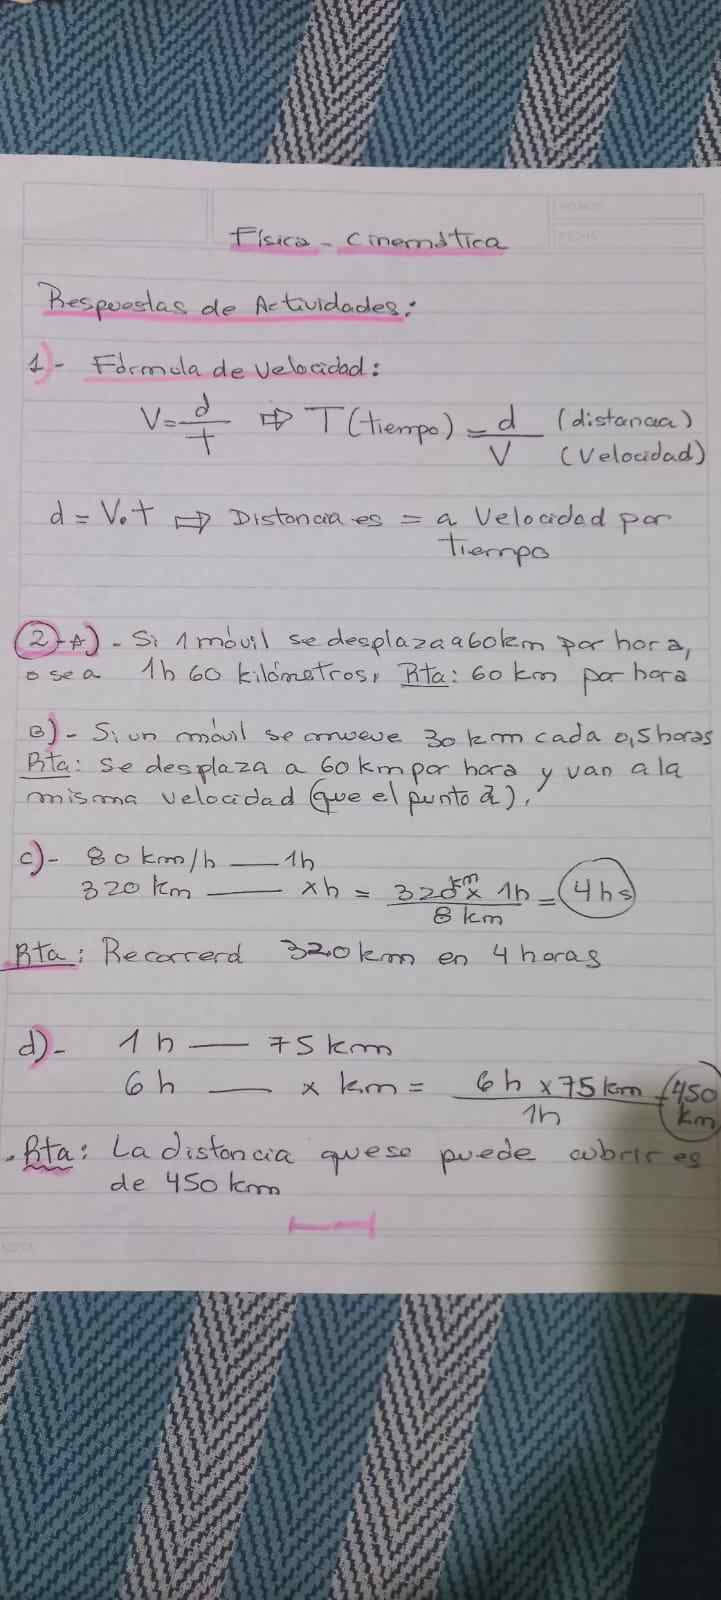 Física - Cinemática
Respuestas de Actividades:
1)- Fórmula de velocidad:
V = d/t ⇨ T (tiempo) = d/V (distancia) (Velocidad)
d = V.t ⇨ Distancia es = a Velocidad por
tiempo
2-A)- Si 1 móvil se desplaza a 60 km por hora,
o sea 1h 60 kilómetros, Rta: 60 km por hora
B)- Si un móvil se mueve 30 km cada 0,5 horas
Rta: Se desplaza a 60 km por hora y van a la
misma velocidad (que el punto a).
c)- 80 km/h — 1h
320 km — xh = 320 km x 1h / 8 km = 4 hs
Rta: Recorrerd 320 km en 4 horas
d)- 1h — 75 km
6h — x km = 6h x 75 km / 1h = 450 km
. Rta: La distancia que se puede cubrir es
de 450 km
NOTA